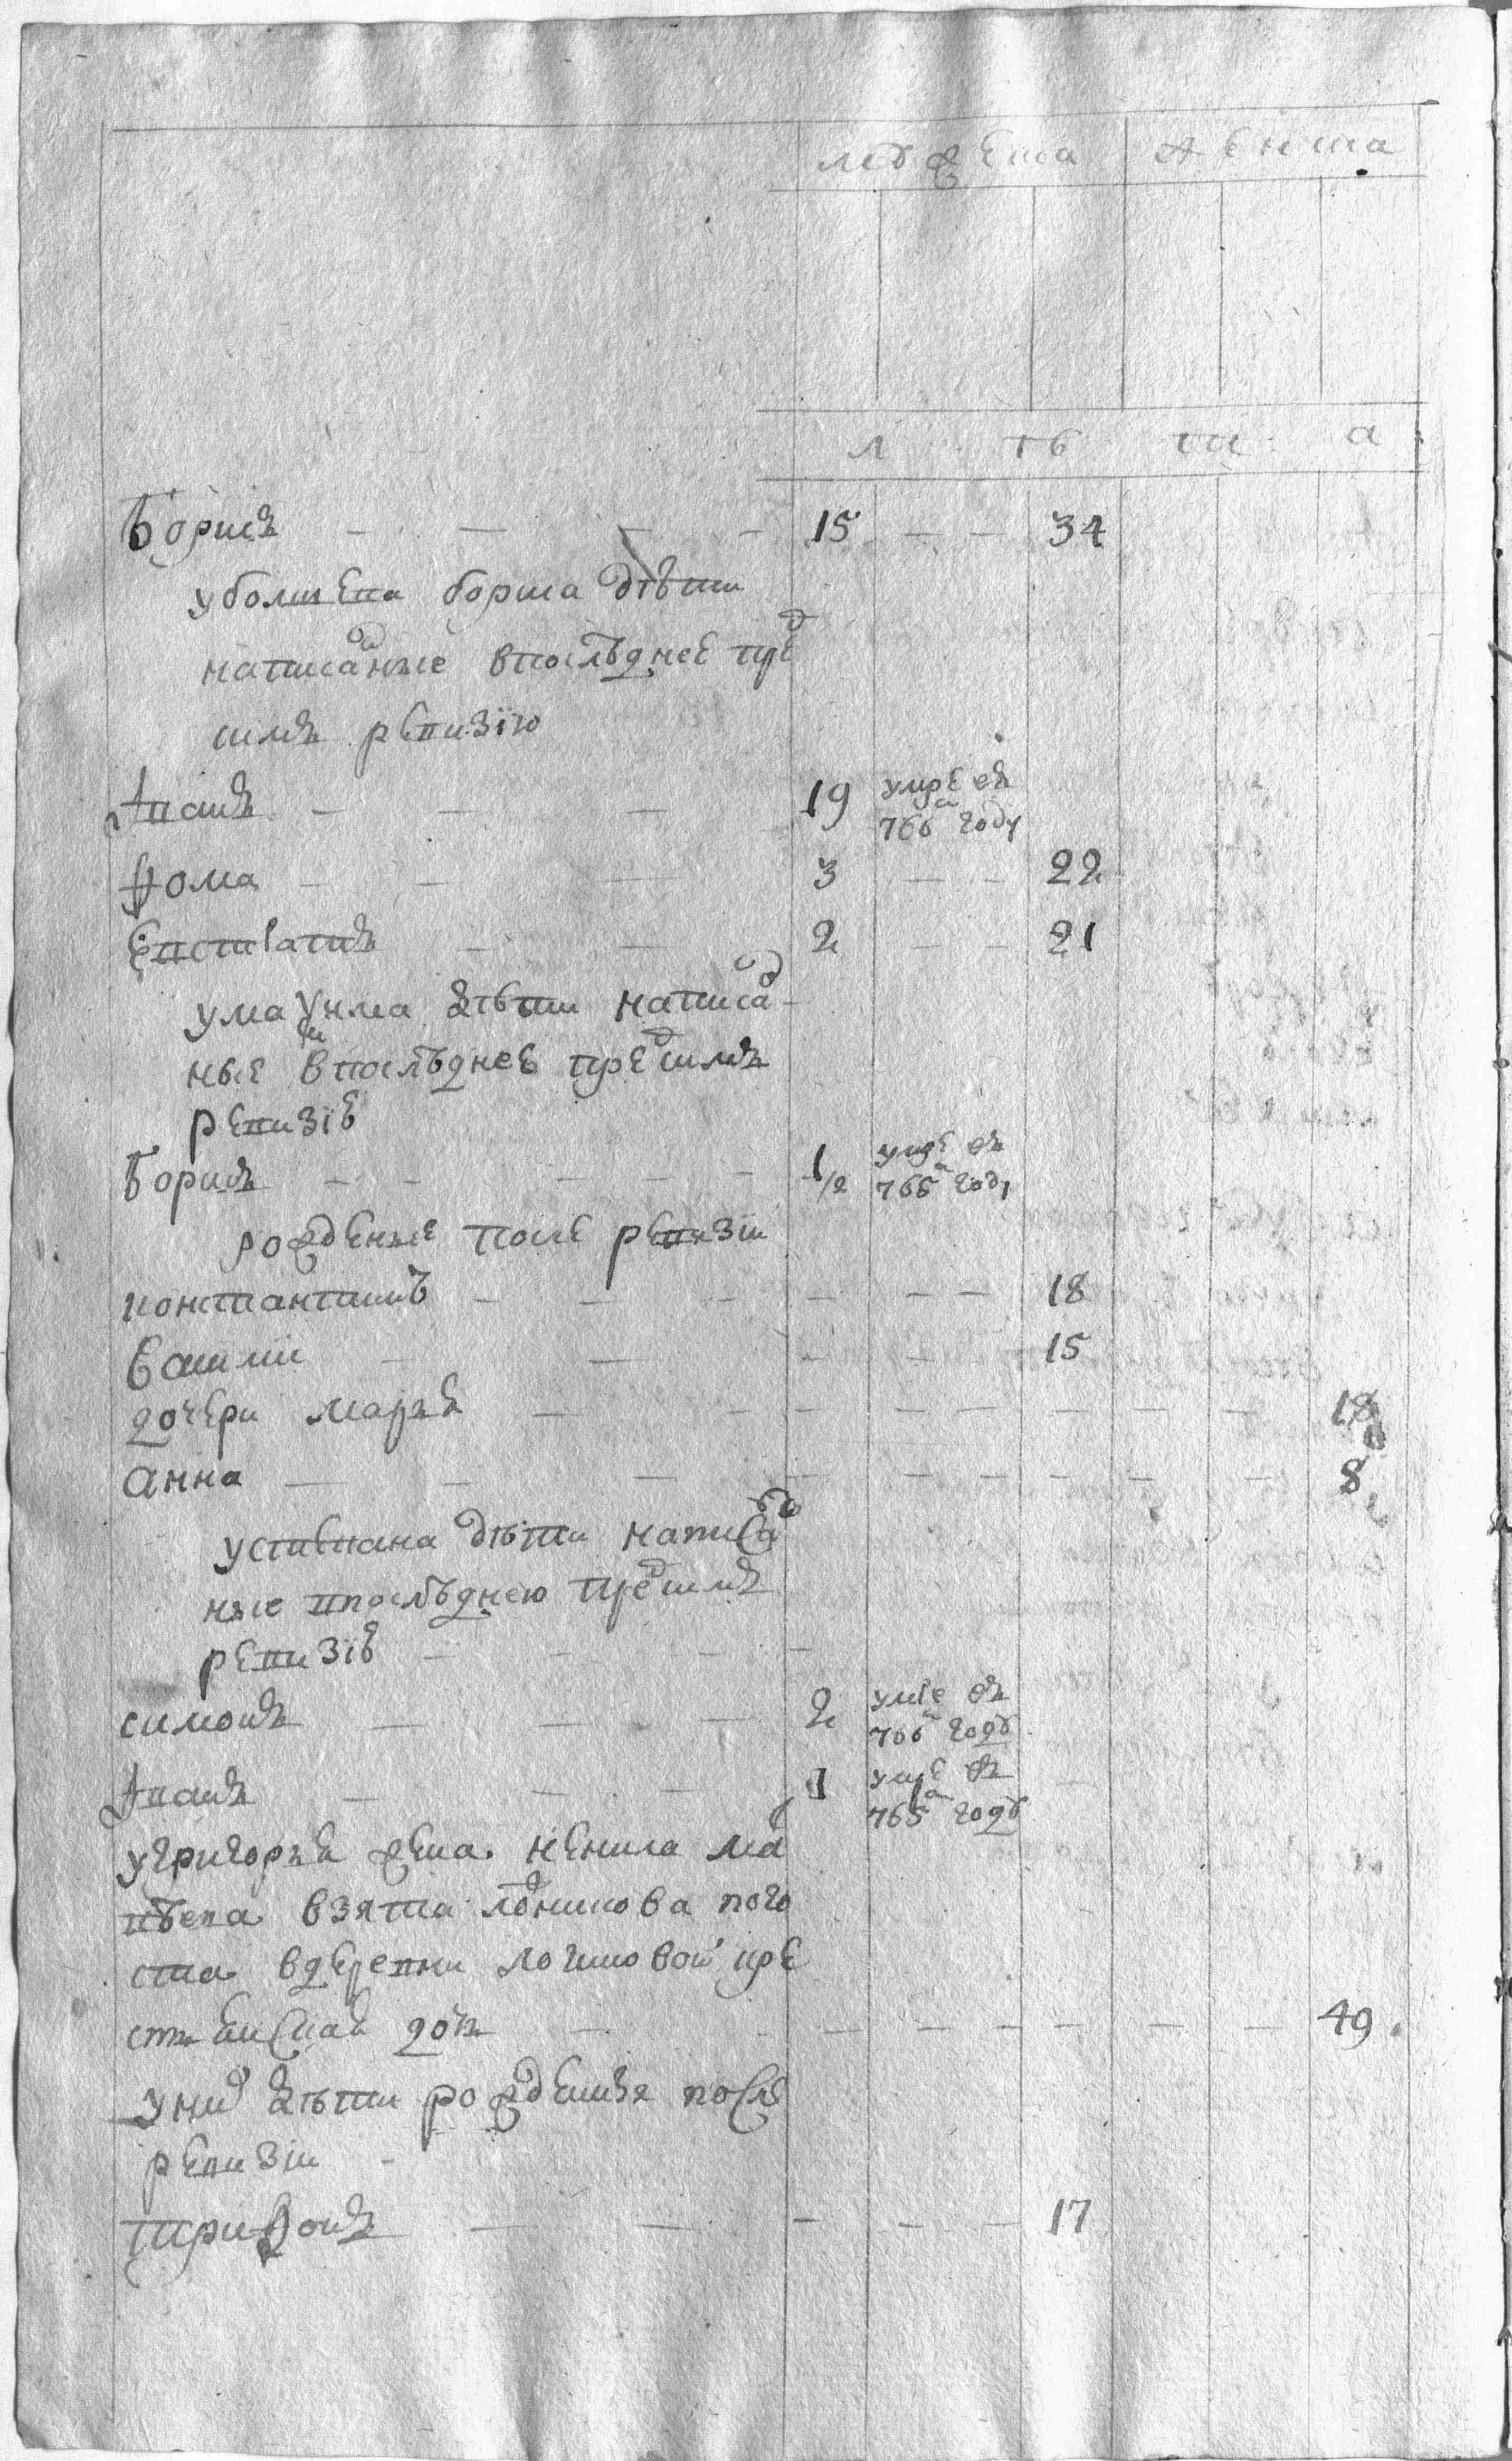 мужеска женска
л ѣ т а
Борисъ — — — 15 — — 34
у большева бориса дѣти
написаные впослѣднеѣ пред
симъ ревизїю
Иванъ — — — 19 умре въ 766м году
Фома — — — 3 — — 22
Евстратий — — 2 — — 21
у максима дѣти написа
ные впослѣднеѣ пред симъ
ревизїѣ
Борисъ — — — 1/2 умре въ 766м году
рожденые после ревизїи
константинъ — — — — — — 18
василий — — — — — 15
дочери марья — — — — — — — 18
анна — — — — — — — — 8
у степана дѣти написа
ные впослѣднею пред симъ
ревизїѣ — — — —
симонъ — — — 2 умре въ 766м году
Иванъ — — — 1 умре въ 765м году
у григорья жена ненила ма
твѣева взята погo
ста вдеревни кре
стьянская дочь — — — — — — — 49
у них дѣти рожденыя после
ревизїи -
трифонъ — — — — — 17